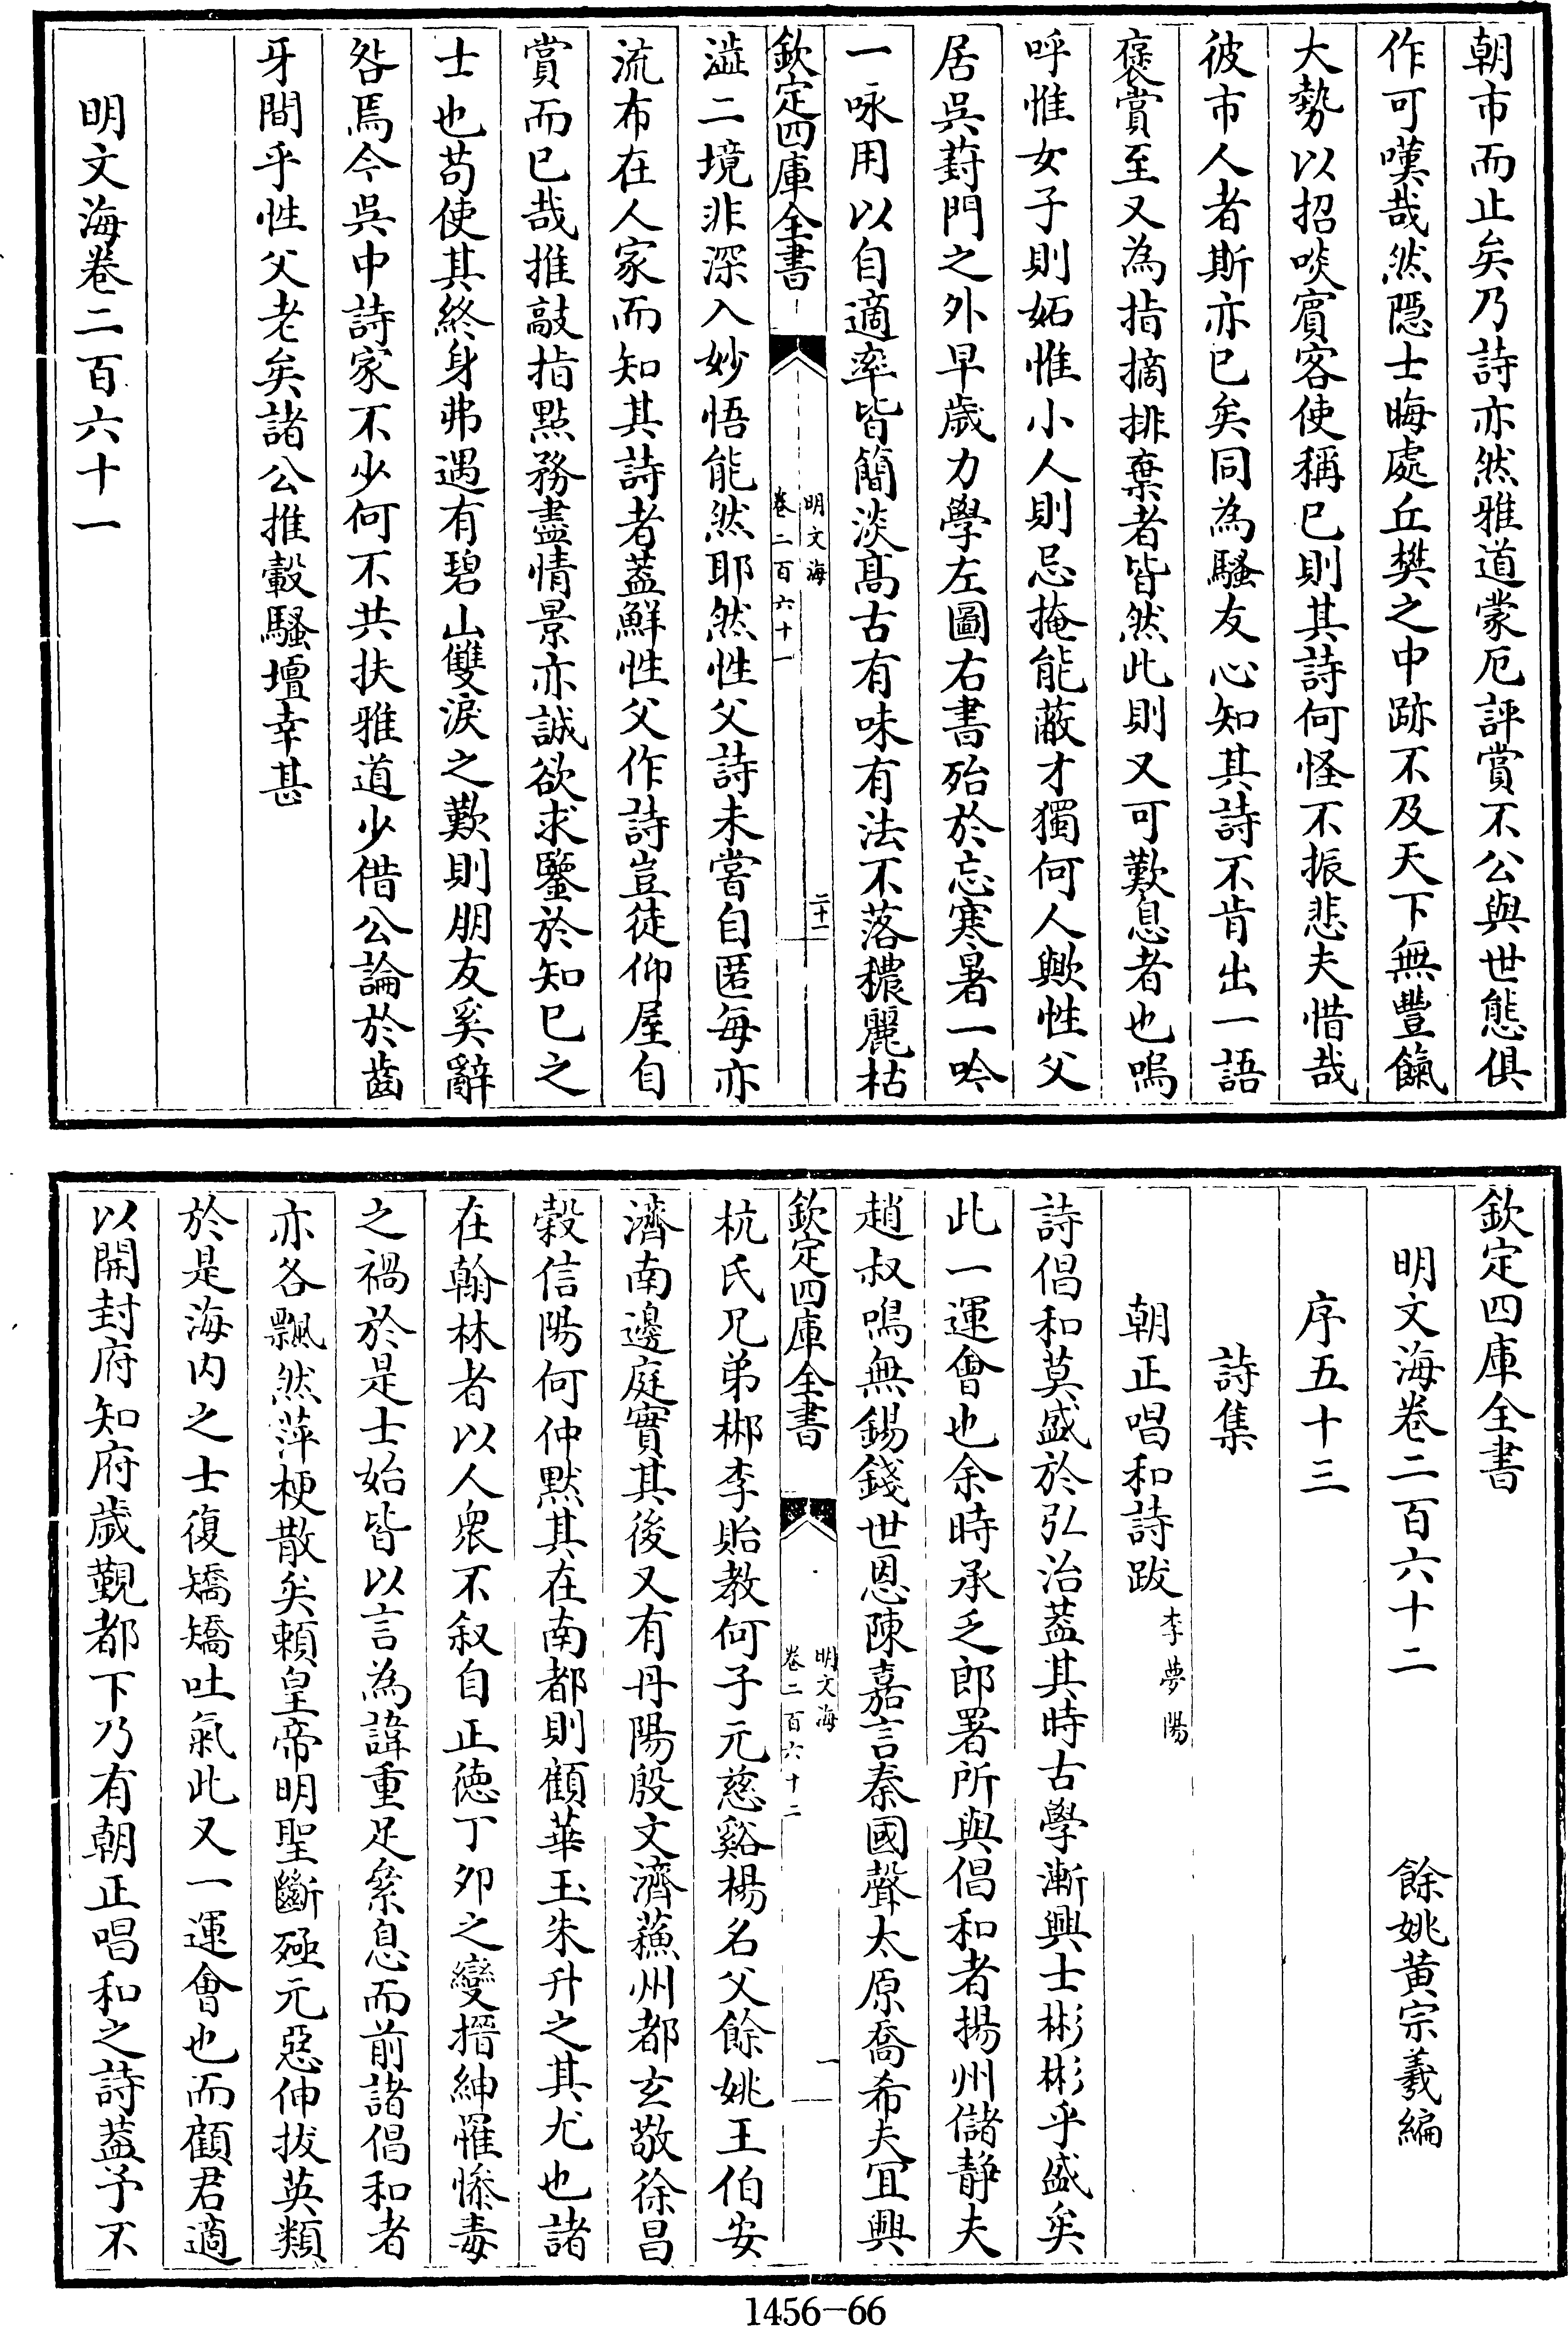 朝市而止矣乃詩亦然雅道蒙厄評賞不公與世態俱
作可嘆哉然隠士晦處丘樊之中跡不及天下無豐餼
大勢以招啖賓客使稱已則其詩何怪不振悲夫惜哉
彼市人者斯亦已矣同為騷友心知其詩不肯出一語
褒賞至又為指摘排棄者皆然此則又可歎息者也嗚
呼惟女子則妬惟小人則忌掩能蔽才獨何人歟性父
居吳葑門之外早歲力學左圖右書殆於忘寒暑一吟
一咏用以自適率皆簡淡髙古有味有法不落穠麗枯
欽定四庫全書
明文海
卷二百六十一
二十一
澁二境非深入妙悟能然耶然性父詩未嘗自匿每亦
流布在人家而知其詩者葢鮮性父作詩豈徒仰屋自
賞而已哉推敲指點務盡情景亦誠欲求鑒於知已之
士也苟使其終身弗遇有碧山雙淚之歎則朋友奚辭
咎焉今吳中詩家不少何不共扶雅道少借公論於齒
牙間乎性父老矣諸公推轂騷壇幸甚
明文海卷二百六十一
欽定四庫全書
明文海卷二百六十二
餘姚黄宗羲編
序五十三
詩集
朝正唱和詩跋 李夢陽
詩倡和莫盛於弘治葢其時古學漸興士彬彬乎盛矣
此一運會也余時承乏郎署所與倡和者揚州儲靜夫
趙叔鳴無錫錢世恩陳嘉言秦國聲太原喬希夫宜興
欽定四庫全書
明文海
卷二百六十二
一
杭氏兄弟郴李貽教何子元慈谿楊名父餘姚王伯安
濟南邊庭實其後又有丹陽殷文濟蘓州都玄敬徐昌
榖信陽何仲黙其在南都則顧華玉朱升之其尤也諸
在翰林者以人衆不叙自正徳丁夘之變搢紳罹慘毒
之禍於是士始皆以言為諱重足絫息而前諸倡和者
亦各飄然萍梗散矣賴皇帝明聖斷殛元惡伸拔英類
於是海内之士復矯矯吐氣此又一運會也而顧君適
以開封府知府歲覲都下乃有朝正唱和之詩葢予不
1456-66